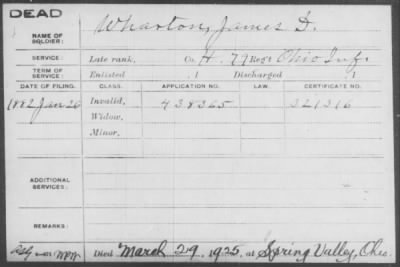 DEAD
NAME OF SOLDIER: Wharton, James D.
SERVICE: Late rank, Co. H. 79 Reg't Ohio Inf.
TERM OF SERVICE: Enlisted , 1 Discharged , 1
DATE OF FILING. CLASS. APPLICATION NO. LAW. CERTIFICATE NO.
1882 Jan 26 Invalid, 438365 321316
Widow,
Minor,
ADDITIONAL SERVICES:
REMARKS:
Died March 29, 1925, at Spring Valley, Ohio.